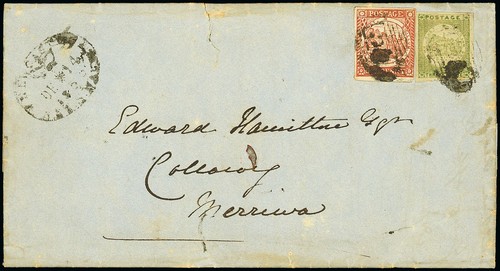 POSTAGE
POSTAGE
Edward Hamilton Esqr
Collaroy
Merriwa